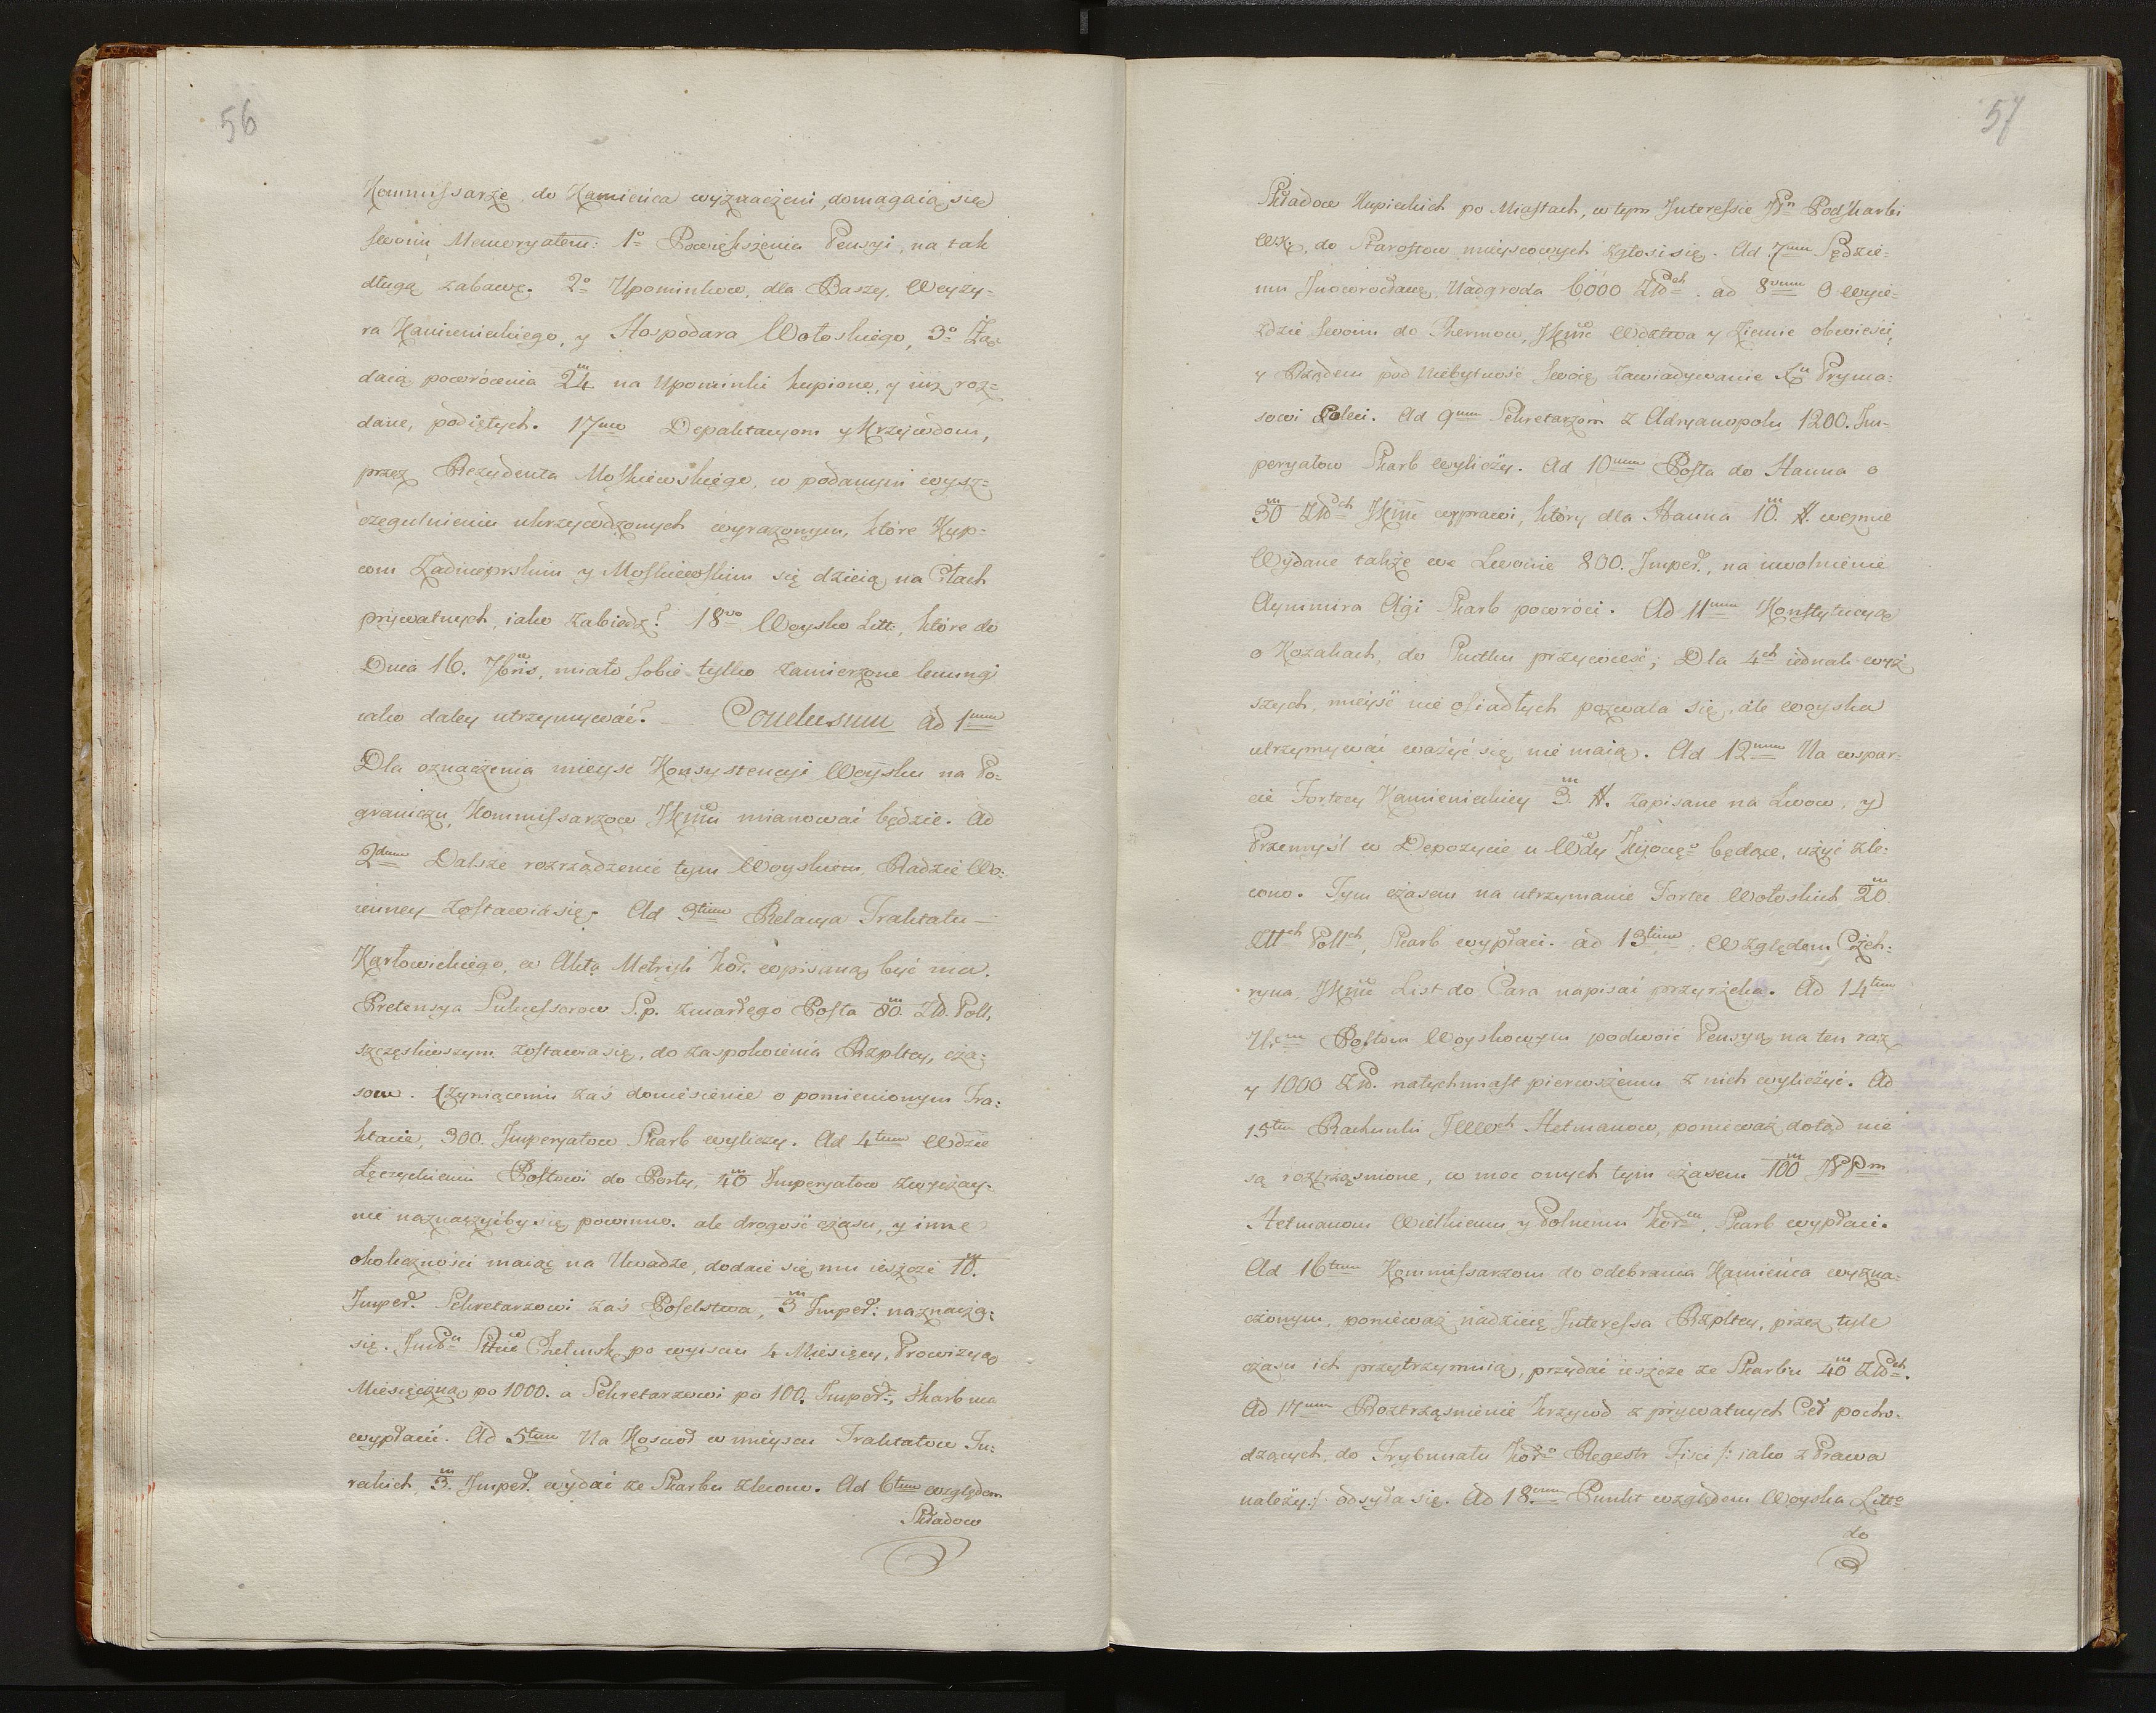 56
Kommissarze, do Kamieńca wyznaczeni, domagaią się
swoim Memoryałem: 1o Powiększenia Pensyi, na tak
długą zabawę. 2o Upominkow, dla Baszy, Wezy-
ra Kamienieckiego, y Hospodara Wołoskiego, 3o Żą-
daią powrócenia 24 m na Upominki kupione, y iuż roz-
dane, podiętych. 17mo Depaktacyom y Krzywdom,
przez Rezydenta Moskiewskiego, w podanym wysz-
czegulnieniu ukrzywdzonych wyrażonym, które Kup-
com Zadnieprskim y Moskiewskim się dzieią na Cłach
prywatnych, iako zabiedz? 18vo Woysko Litt:, które do
Dnia 16. 7bris, miało sobie tylko zamierzone lenungi
iako daley utrzymywać? — Conclusum Ad 1mum
Dla oznaczenia mieysc Konsystencyi Woysku na Po-
graniczu, Kommissarzow JKMć mianować będzie. Ad
2dum Dalsze rozrządzenie tym Woyskiem, Radzie Wo-
ienney zostawia się. Ad 3tium Relacya Traktatu —
Karłowickiego, w Akta Metryk Kor. wpisaną być ma.
Pretensya Sukcessorow S.p. zmarłego Posła 80. m Zł. Poll,
szczęśliwszym zostawia się, do zaspokoienia Rzpltey, cza-
som. Czyniącemu zaś doniesienie o pomienionym Tra-
ktacie, 300. Imperyałow Skarb wyliczy. Ad 4tum Wdzie
Łęczyckiemu Posłowi do Porty, 40 m Imperyałow zwyczay-
nie naznaczyćby się powinno. ale drogość czasu, y inne
okoliczności maiąc na Uwadze, dodaie się mu ieszcze 10. m
Imper. Sekretarzowi zaś Poselstwa, 3 m Imper: naznacza
się. Chełmsk po wyisciu 4 Miesięcy, Prowizyą
Miesięczną po 1000. a Sekretarzowi po 100. Imper:, Skarb ma
wypłacić. Ad 5tum Na Rozchod w mieyscu Traktatow Tu-
reckich, 3. m Imper. wydać ze Skarbu zlecono. Ad 6tum względem
Składow
57
Składow Kupieckich po Miastach, w tym Interessie JPn Podskarbi
WX, do Starostow mieyscowych zgłosi się. Ad 7mum Sędzie-
mu Inowrocławę, Nadgroda 6000 Złch. ad 8vum O wyie-
zdzie swoim do Thermow, JKMć Wdztwa y Ziemie obwieści,
y Rządem pod Niebytność swoię, zawiadywanie Xu Pryma-
sowi Poleci. Ad 9num Sekretarzom z Adryanopolu 1200. Im-
peryałow Skarb wyliczy. Ad 10mum Posła do Hanna o
30 m Złch JKMć wyprawi, który dla Hanna 10. m #. wezmie
Wydane także we Lwowie 800. Imper., na uwolnienie
Aynimira Agi Skarb powróci. Ad 11mum Konstytucyą
o Kozakach, do Skutku przywieść; Dla 4ch iednak wyż-
szych, mieysc nie osiadłych pozwala się, ale woyska
utrzymywać ważyć się nie maią. Ad 12mum Na wspar-
cie Fortecy Kamienieckiey 3. m #. zapisane na Lwow, y
Przemyśl w Depozycie u Wdy Kijowo będące, użyć zle-
cono. Tym czasem na utrzymanie Fortec Wołoskich 20. m
Złłch Pollch, Skarb wypłaci. ad 13tium. Względem Czeh-
ryna, JKMć List do Cara napisać przyrzeka. Ad 14tum
Posłom Woyskowym podwoić Pensyą na ten raz
y 1000 Zł. natychmiast pierwszemu z nich wyliczyć. Ad
15tum Rachunki JWWch Hetmanow, ponieważ dotąd nie
są roztrząsnione, w moc onych tym czasem 100 m JPPm
Hetmanom Wielkiemu y Polnemu Korm, Skarb wypłaci.
Ad 16tum Kommissarzom do odebrania Kamieńca wyzna-
czonym, ponieważ nadzieię Interessa Rzpltey, przez tyle
czasu ich przytrzymuią, przydać ieszcze ze Skarbu 40 m Złch.
Ad 17mum Roztrząśnienie krzywd z prywatnych Ceł pocho-
dzących, do Trybunału Koro Regestr Fisci /: iako z Prawa
należy :/ odsyła się. Ad 18vum Punkt względem Woyska Litto
do